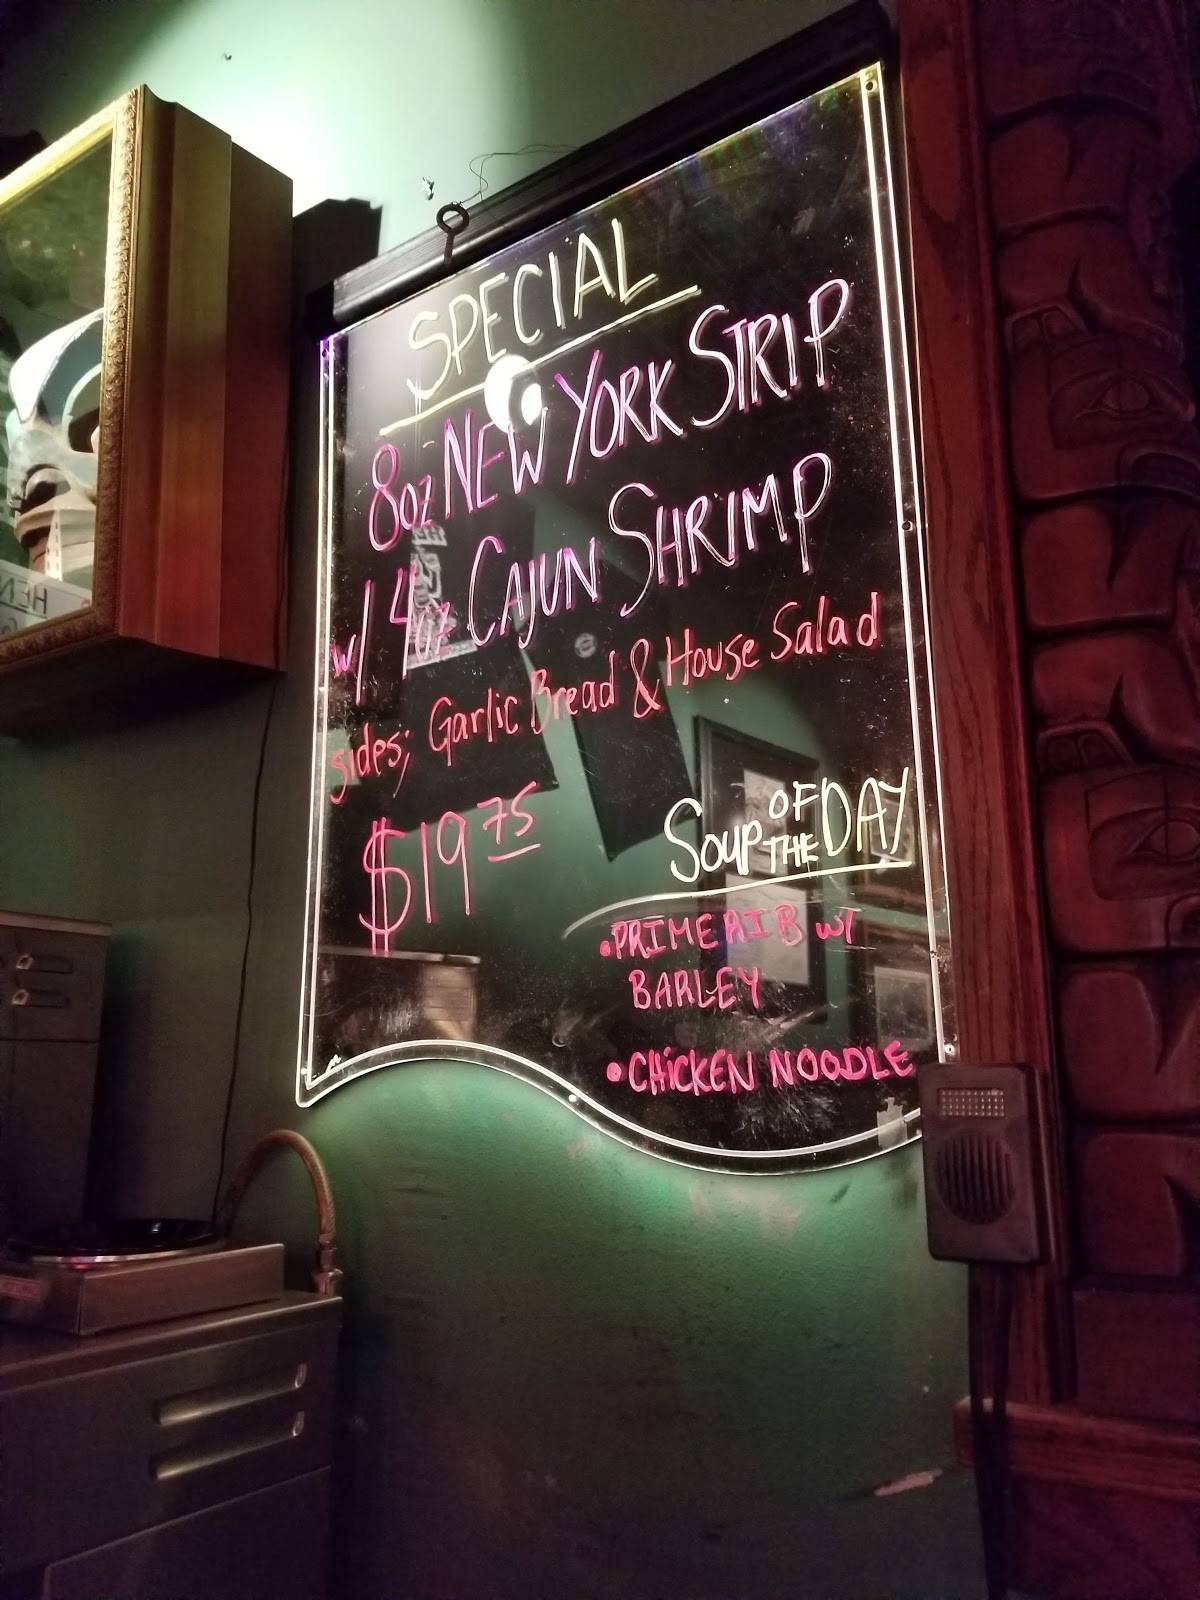 SPECIAL
8oz NEW YORK STRIP
w/ 4oz CAJUN SHRIMP
sides; Garlic Bread & House Salad
$19 75
SOUP OF THE DAY
• PRIME RIB w/
BARLEY
• CHiCKEN NOODLE
HEN